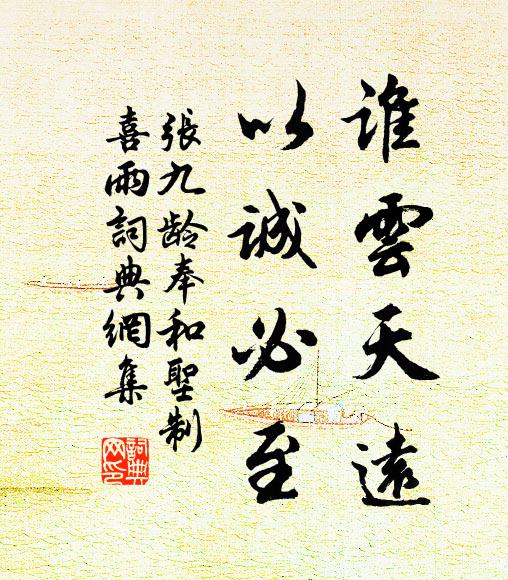 誰雲天遠
以誠必至
張九龄奉和聖制
喜雨詞典網集
詞典
网印